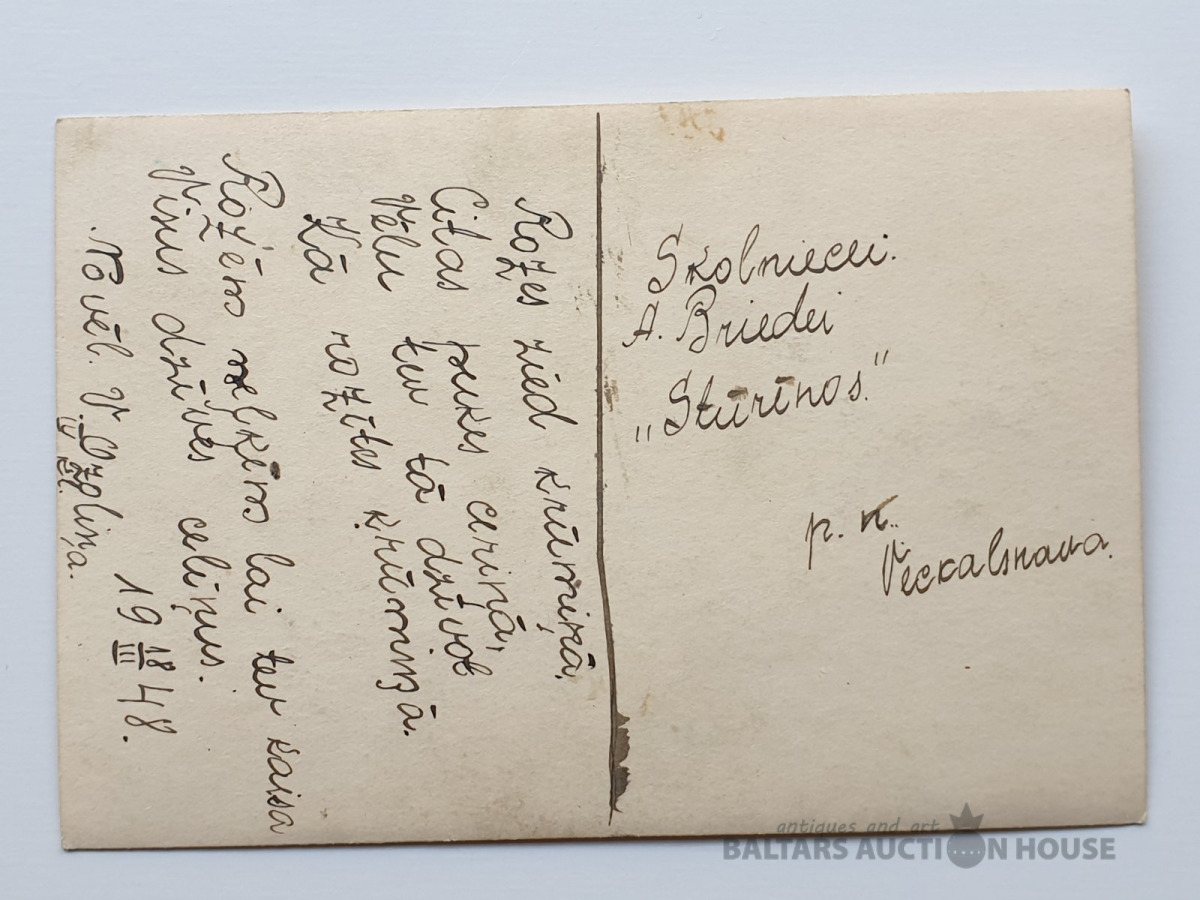 Rozes zied krūmiņā,
Citas pukes ceriņā,
Vēlu tev tā dzīvot
Kā rozītes krūmiņā.
Rožēm neļķēm lai tev kaisa
Visus dzīves celiņus.
Novēl. V. Ozoliņa.
IV kl.
19 18/III 48.
Skolniecei.
A. Briedei
„Stūrīnos."
p. n.
Veckalsnava.
antiques and art
BALTARS AUCTION HOUSE